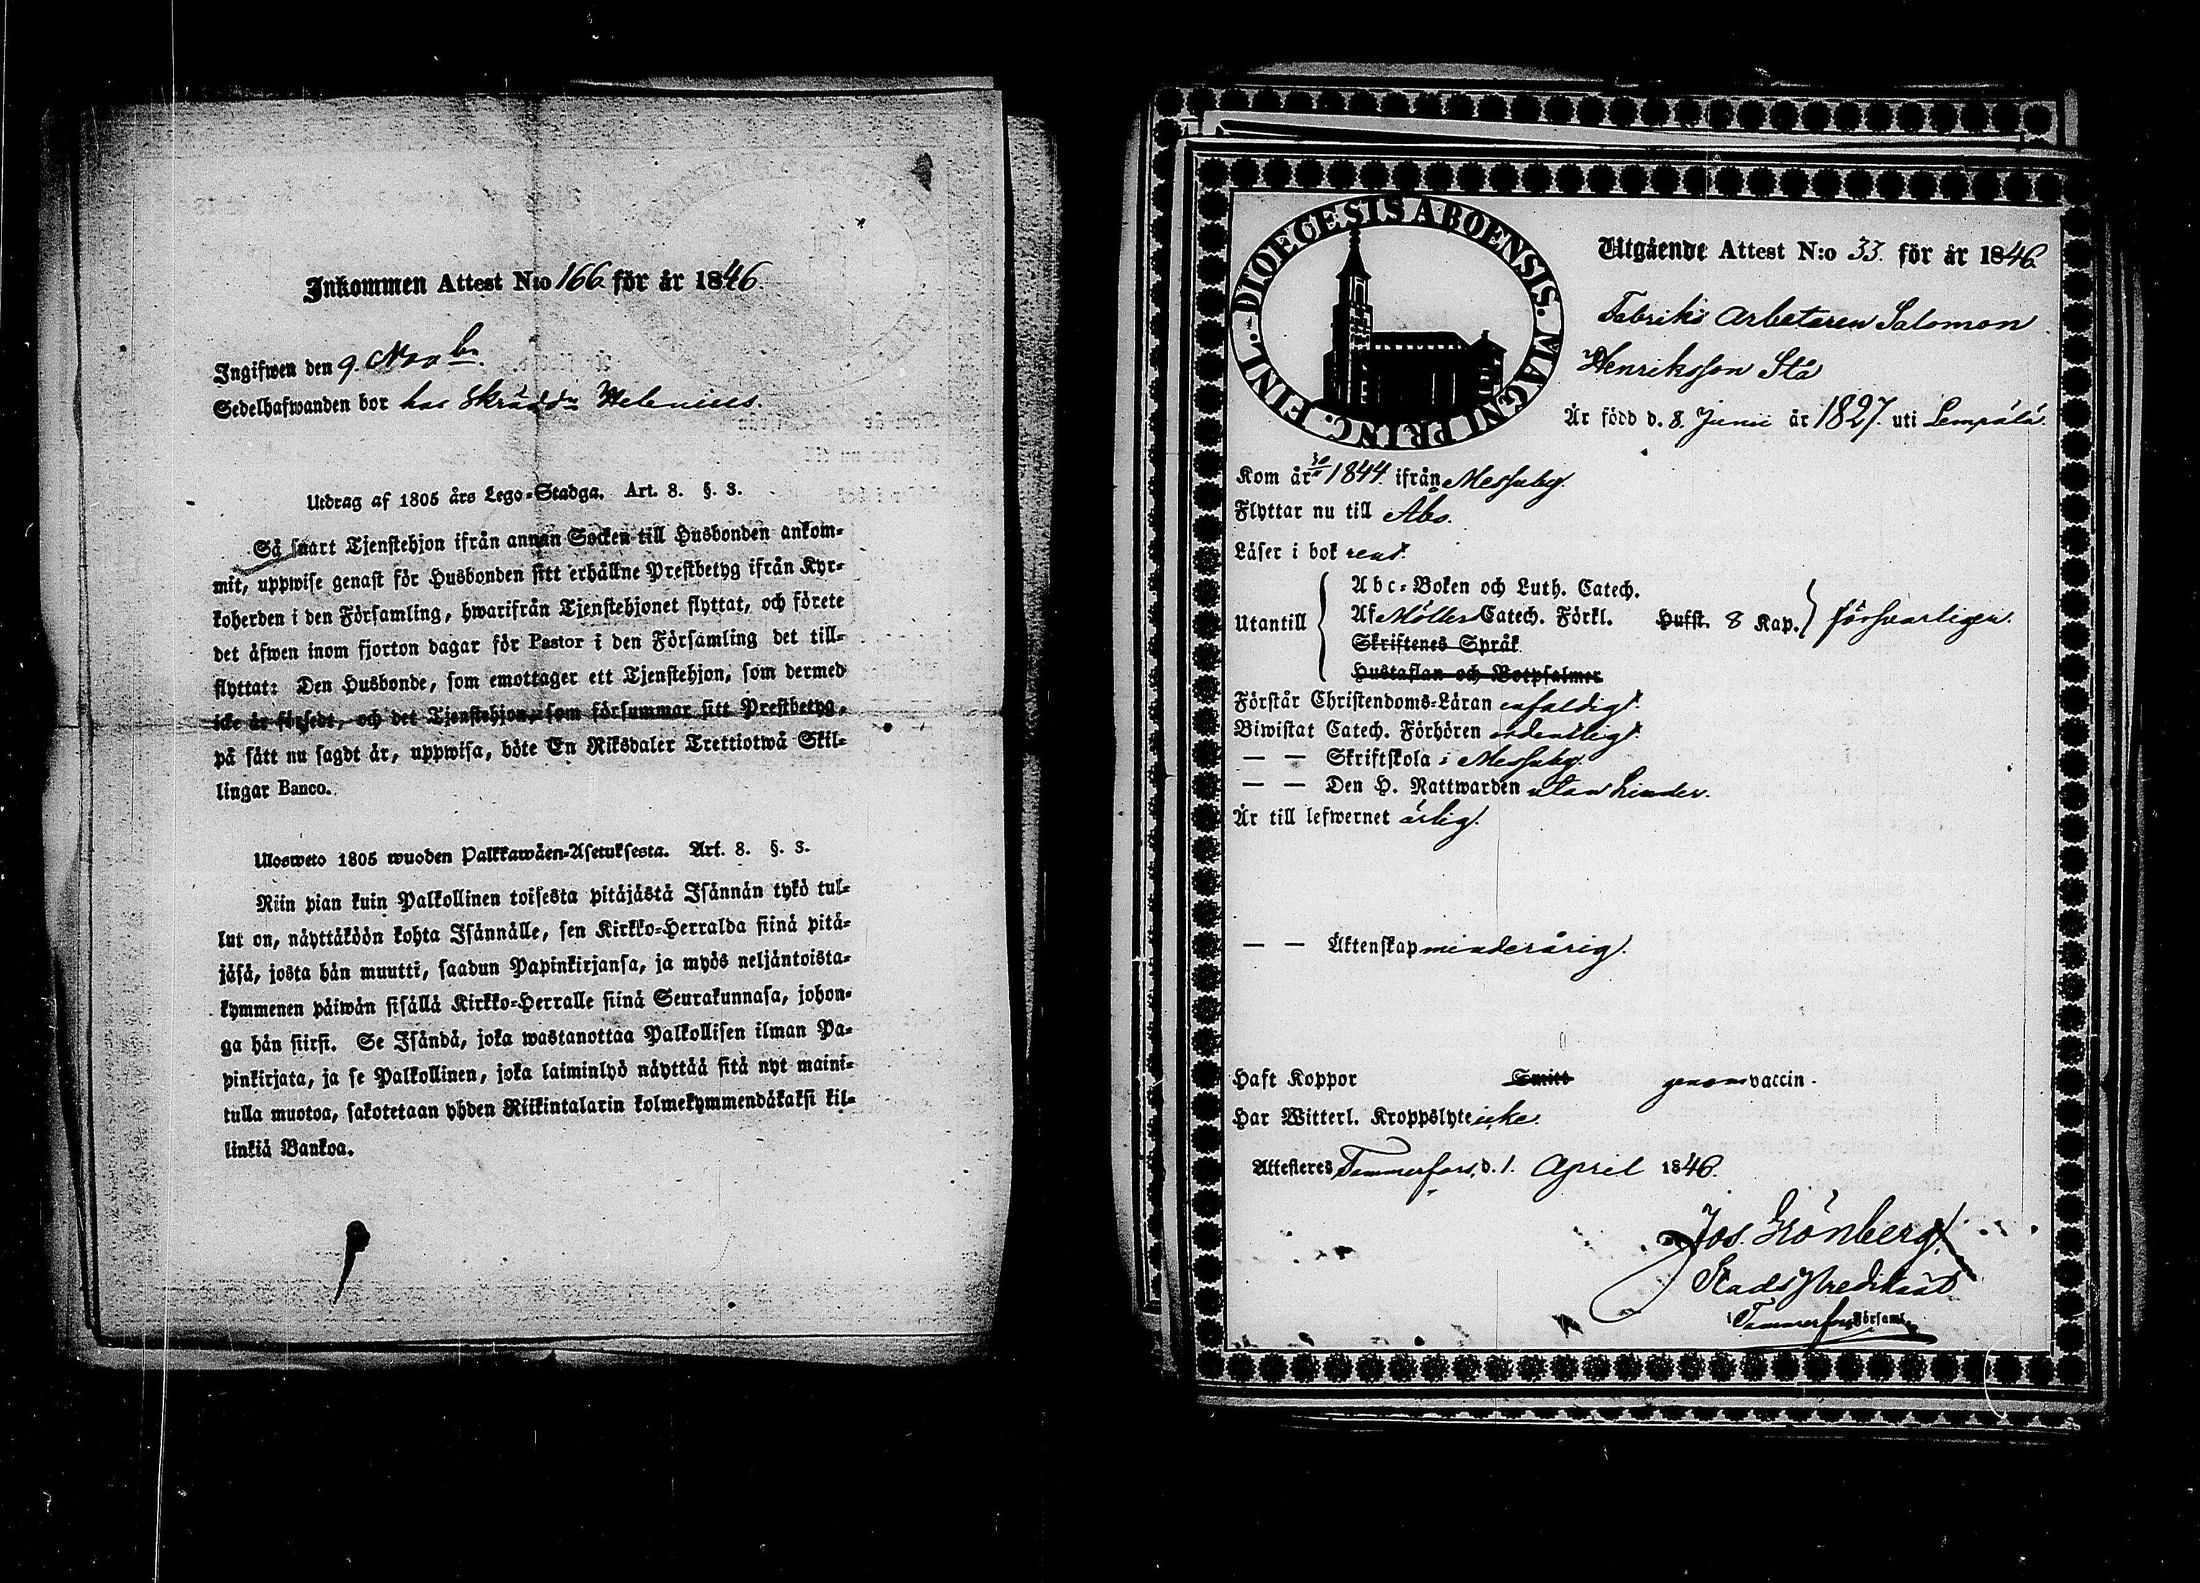 Inkommen Attest N:o 166. för år 1846.
Ingifwen den 9. Novbr.
Sedelhafwanden bor hos Skräddn Helenius.
Utdrag af 1805 års Lego-Stadga. Art. 8. §. 3.
Så snart Tjenstehjon ifrån annan Socken till Husbonden ankom-
mit, uppwise genast för Husbonden sitt erhållne Prestbetyg ifrån Kyr-
koherden i den Församling, hwarifrån Tjenstehjonet flyttat, och förete
det äfwen inom fjorton dagar för Pastor i den Församling det till-
flyttat: Den Husbonde, som emottager ett Tjenstehjon, som dermed
icke är försedt, och det Tjenstehjon, som försummar sitt Prestbetyg,
på sätt nu sagdt är, uppwisa, böte En Riksdaler Trettiotwå Skil-
lingar Banco.
Ulosweto 1805 wuoden Palkkawäen-Asetuksesta. Art. 8. §. 3.
Niin pian kuin Palkollinen toisesta pitäjästä Isännän tykö tul-
lut on, näyttäköön kohta Isännälle, sen Kirkko-Herralda siinä pitä-
jäsä, josta hän muutti, saadun Papinkirjansa, ja myös neljäntoista-
kymmenen päiwän sisällä Kirkko-Herralle siinä Seurakunnasa, johon-
ga hän siirsi. Se Isändä, joka wastanottaa Palkollisen ilman Pa-
pinkirjata, ja se Palkollinen, joka laiminlyö näyttää sitä nyt maini-
tulla muotoa, sakotetaan yhden Riikintalarin kolmekymmendäkaksi kil-
linkiä Bankoa.
DIOECESIS ABOENSIS. MAGNI PRINC. FINL.
Utgående Attest N:o 33. för år 1846.
Fabriks Arbetaren Salomon
Henriksson Stå
Är född d. 8. Junii år 1827. uti Lempälä.
Kom år 1844 ifrån Messuby.
Flyttar nu till Åbo.
Läser i bok rent.
Abc-Boken och Luth. Catech.
Utantill Af Möllers Catech. Förkl. Hufst. 8 Kap. försvarligen.
Skriftenes Språk
Hustaflan och Botpsalmer
Förstår Christendoms-Läran enfaldigt.
Biwistat Catech. Förhören ordentligt.
— — Skriftskola i Messuby.
— — Den H. Nattwarden utan hinder.
Är till lefwernet ärlig.
— — Äktenskap minderårig.
Haft Koppor Smitt genom vaccin.
Har Witterl. Kroppslyte icke.
Attesteres Tammerfors, d. 1. April 1846.
Jos. Grönberg.
Stads Predikant
i Tammerfors Församl.